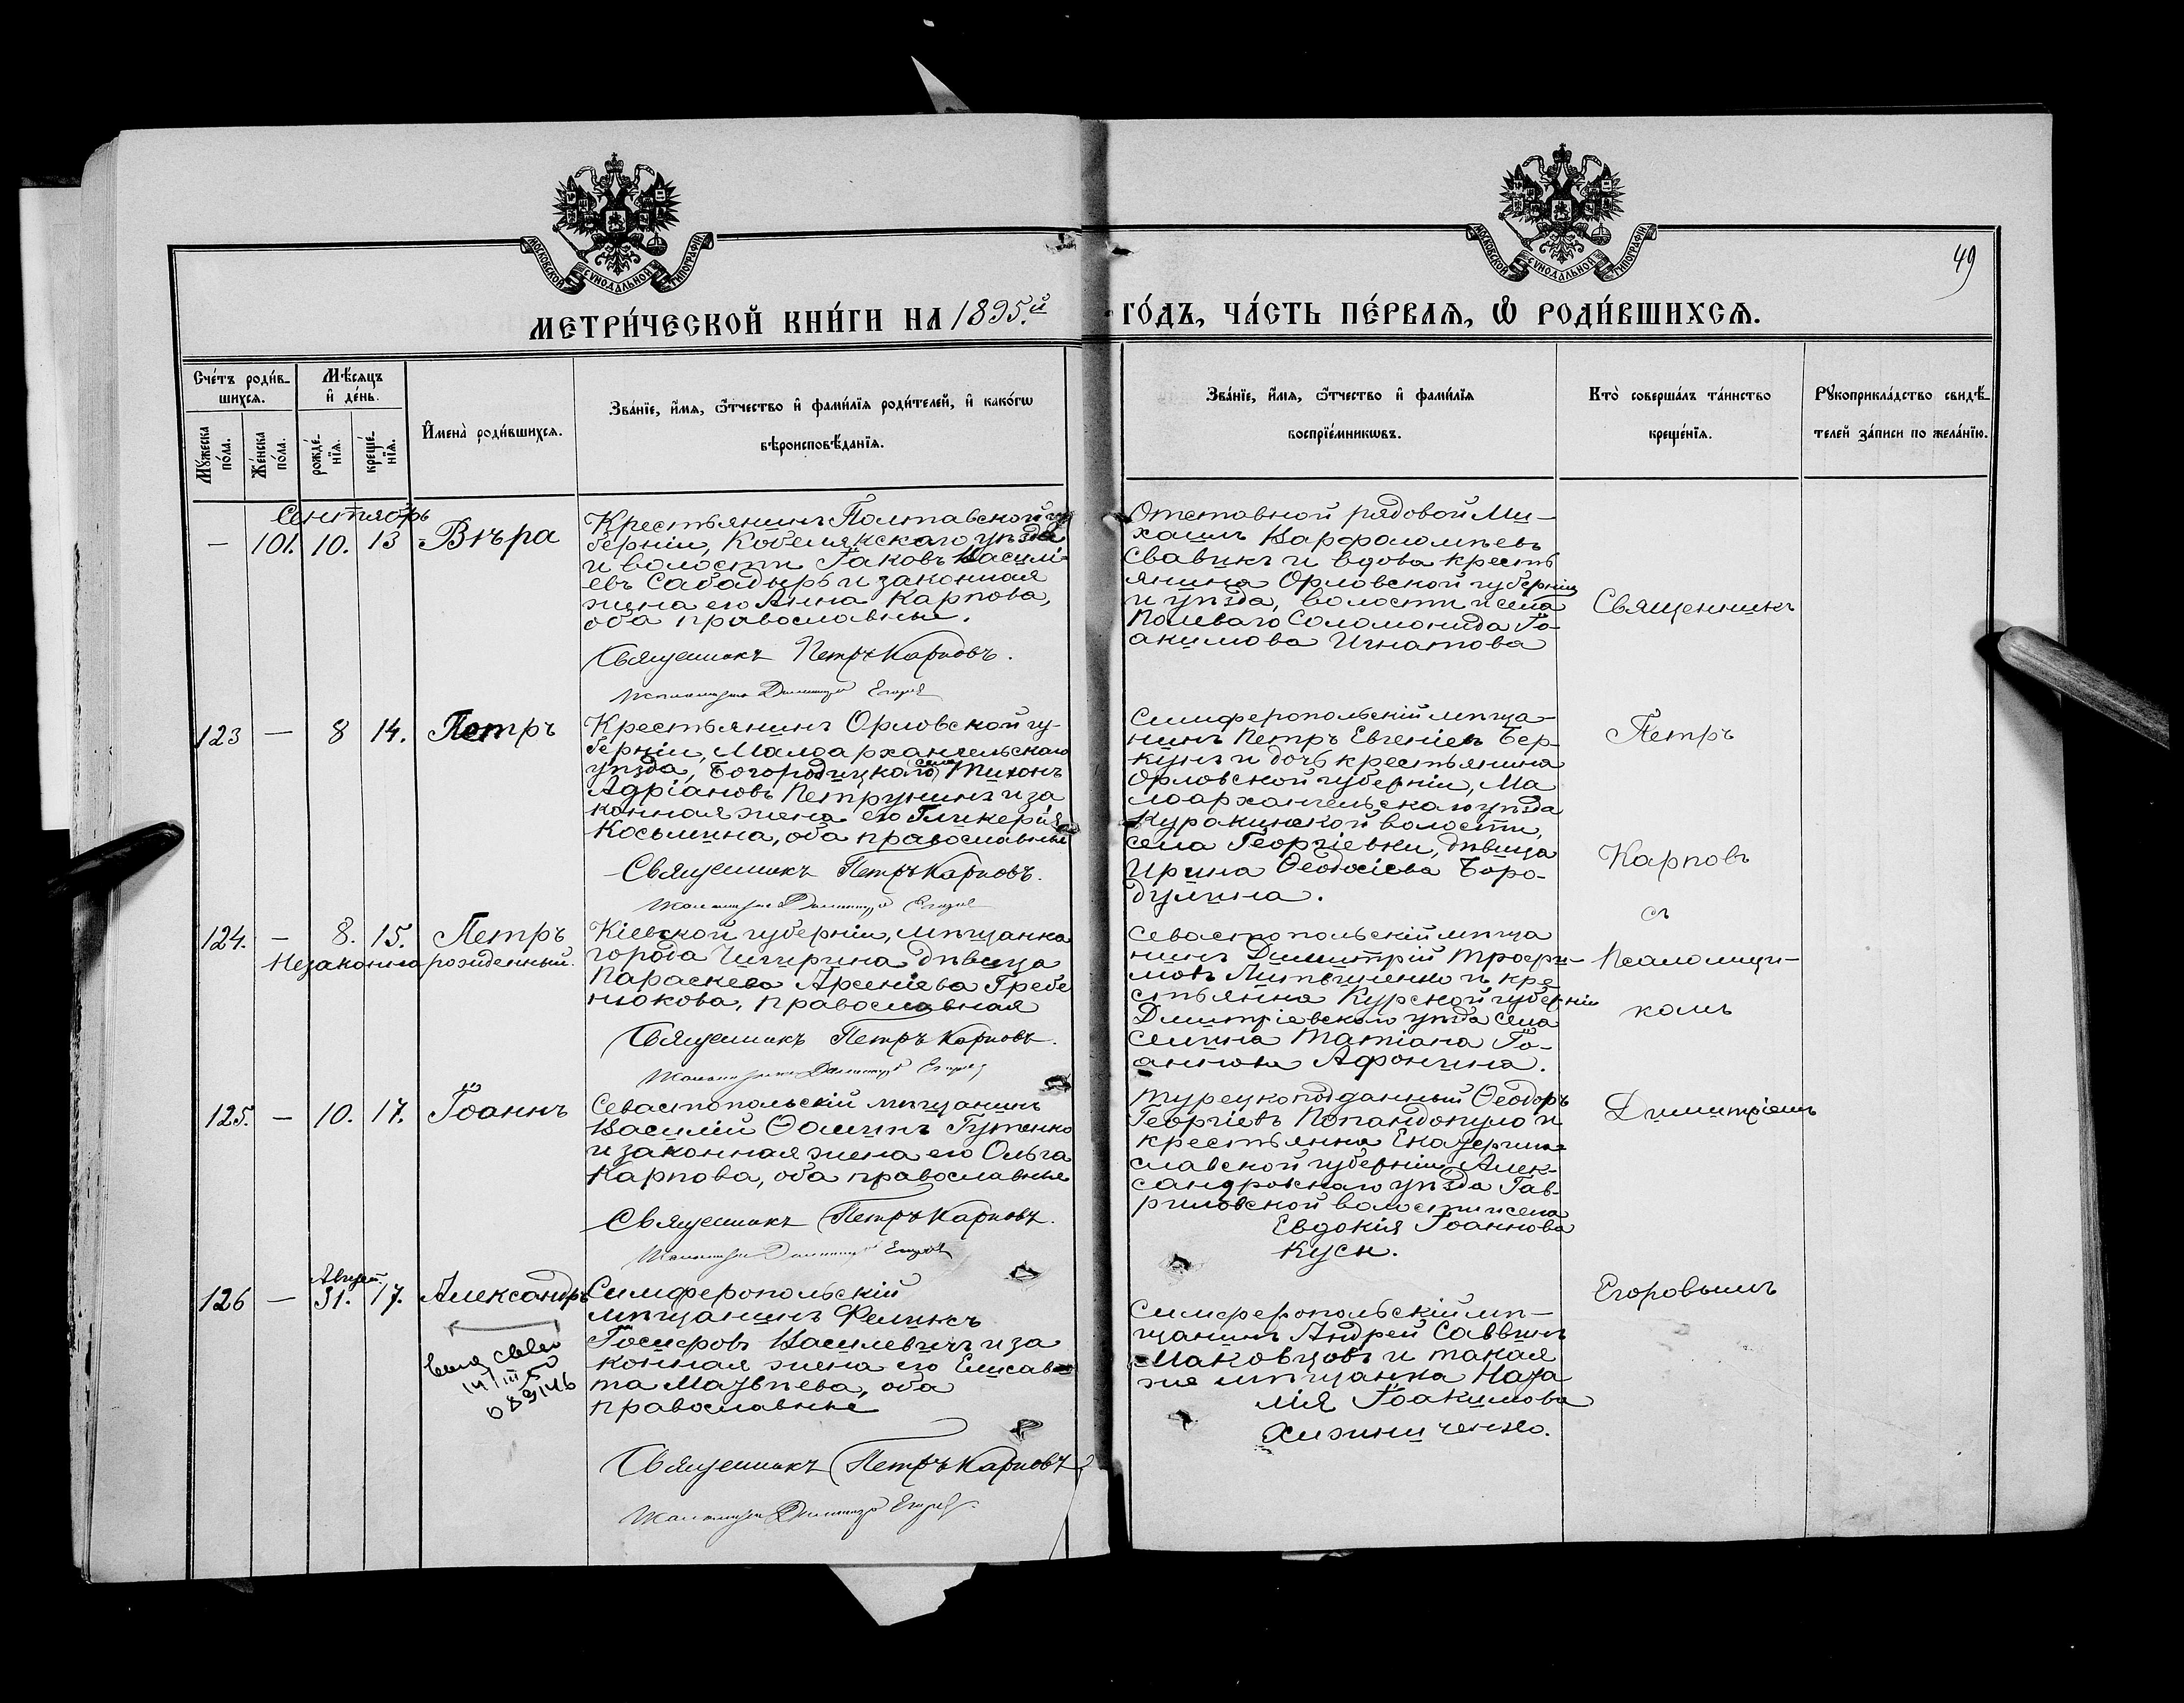 МОСКОВСКОЙ СѴНОДАЛЬНОЙ ТИПОГРАФІИ
МОСКОВСКОЙ СѴНОДАЛЬНОЙ ТИПОГРАФІИ
49
МЕТРИ́ЧЕСКОЙ КНИ́ГИ НА 1895.й ГО́ДЪ, ЧА́СТЬ ПЕ́РВАѦ, Ѡ҆ РОДИ́ВШИХСѦ.
Сче́тъ роди́в-
шихсѧ.
Мꙋ́жеска
по́ла.
Же́нска
по́ла.
Мѣ́сѧцъ
и҆ де́нь.
рожде́-
нїѧ.
креще́-
нїѧ.
И҆мена̀ роди́вшихсѧ.
Зва́нїе, и҆́мѧ, ѻ҆́тчество и҆ фами́лїѧ роди́телей, и҆ како́гѡ
вѣроисповѣ́данїѧ.
Зва́нїе, и҆́мѧ, ѻ҆́тчество и҆ фами́лїѧ
воспрїе́мникѡвъ.
Кто̀ соверша́лъ та́инство
креще́нїѧ.
Рꙋкоприкла́дство свидѣ́-
телей за́писи по жела́нїю.
Сентябрь
— 101. 10. 13 Вѣра
Крестьянинъ Полтавской гу
берніи, Кобелякскаго уѣзда
и волости Іаковъ Василі-
евъ Сабадырь и законная
жена его Анна Карпова,
оба православные.
Священникъ Петръ Карповъ.
Псаломщикъ Димитрій Егоровъ
Отставной рядовой Ми-
хаилъ Варфоломѣевъ
Свавикъ и вдова кресть
янина Орловской губерніи
и уѣзда, волости и села
Полеваго Соломонида Іо-
акимова Игнатова
Священникъ
123 — 8 14. Петръ
Крестьянинъ Орловской гу-
берніи, Малоархангельскаго
уѣзда, Богородицкаго села Тихонъ
Адріановъ Петрунинъ и за
конная жена его Гликерія
Косьмина, оба православные
Священникъ Петръ Карповъ.
Псаломщикъ Димитрій Егоровъ
Симферопольскій мѣща-
нинъ Петръ Евгеніевъ Бер-
кунъ и дочь крестьянина
Орловской губерніи, Ма
лоархангельскаго уѣзда
Куракинской волости,
села Георгіевки, дѣвица
Ирина Ѳеодосіева Боро-
дулина.
Петръ
Карповъ
съ
124. — 8. 15. Петръ
Незаконнорожденный.
Кіевской губерніи, мѣщанка
города Чигирина дѣвица
Параскева Арсеніева Гребе
нюкова, православная
Священникъ Петръ Карповъ.
Псаломщикъ Димитрій Егоровъ
Севастопольскій мѣща
нинъ Димитрій Трофи-
мовъ Литвиненко и кре
стьянка Курской губерніи
Дмитріевскаго уѣзда села
Селина Татіана Іо-
аннова Афонина.
Псаломщи-
комъ
125. — 10. 17. Іоаннъ
Севастопольскій мѣщанинъ
Василій Ѳоминъ Гутенко
и законная жена его Ольга
Карпова, оба православные
Священникъ Петръ Карповъ.
Псаломщикъ Димитрій Егоровъ
Турецкоподданный Ѳеодоръ
Георгіевъ Попандопуло и
крестьянка Екатерино
славской губерніи Алек-
сандровскаго уѣзда Гав-
риловской волости и села
Евдокія Іоаннова
Куси.
Димитріемъ
Август.
126 — 31. 17. Александръ
Симферопольскій
мѣщанинъ Феликсъ
Іосифовъ Василевичъ и за
конная жена его Елисаве
та Матвѣева, оба
православные
Священникъ Петръ Карповъ
Псаломщикъ Димитрій Егоровъ.
14/III
Симферопольскій мѣ-
щанинъ Андрей Саввинъ
Маковцовъ и такая
же мѣщанка Ната
лія Іоакимова
Хижниченко.
Егоровымъ